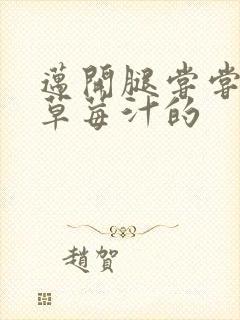 邁開腿嘗嘗
草莓汁的
趙賀